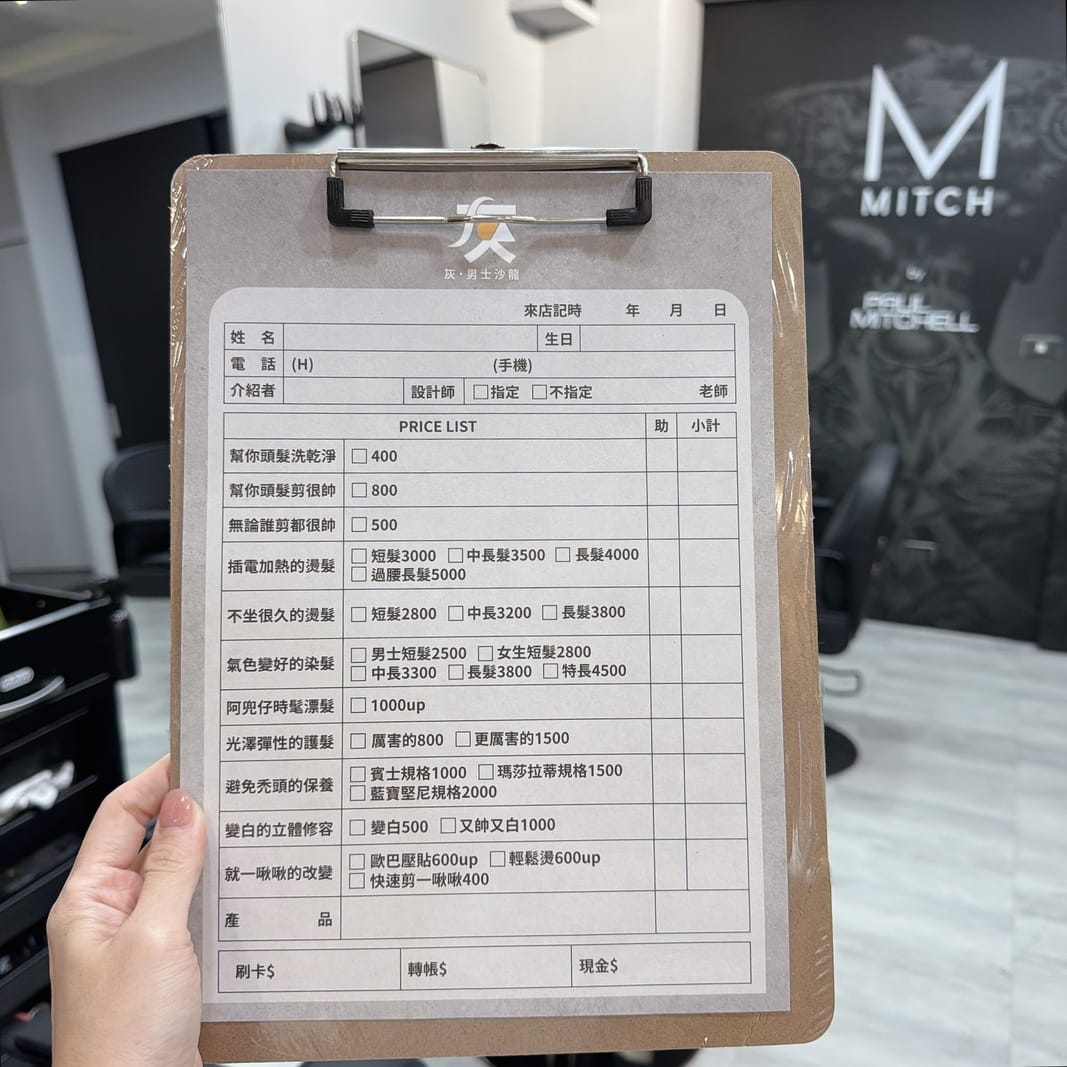 M
MITCH
by
PAUL
MITCHELL
灰
灰·男士沙龍
來店記時 年 月 日
姓 名 生日
電 話 (H) (手機)
介紹者 設計師 □指定 □不指定 老師
PRICE LIST 助 小計
幫你頭髮洗乾淨 □400
幫你頭髮剪很帥 □800
無論誰剪都很帥 □500
插電加熱的燙髮 □短髮3000 □中長髮3500 □長髮4000
□過腰長髮5000
不坐很久的燙髮 □短髮2800 □中長3200 □長髮3800
氣色變好的染髮 □男士短髮2500 □女生短髮2800
□中長3300 □長髮3800 □特長4500
阿兜仔時髦漂髮 □1000up
光澤彈性的護髮 □厲害的800 □更厲害的1500
避免禿頭的保養 □賓士規格1000 □瑪莎拉蒂規格1500
□藍寶堅尼規格2000
變白的立體修容 □變白500 □又帥又白1000
就一啾啾的改變 □歐巴壓貼600up □輕鬆燙600up
□快速剪一啾啾400
產 品
刷卡$ 轉帳$ 現金$